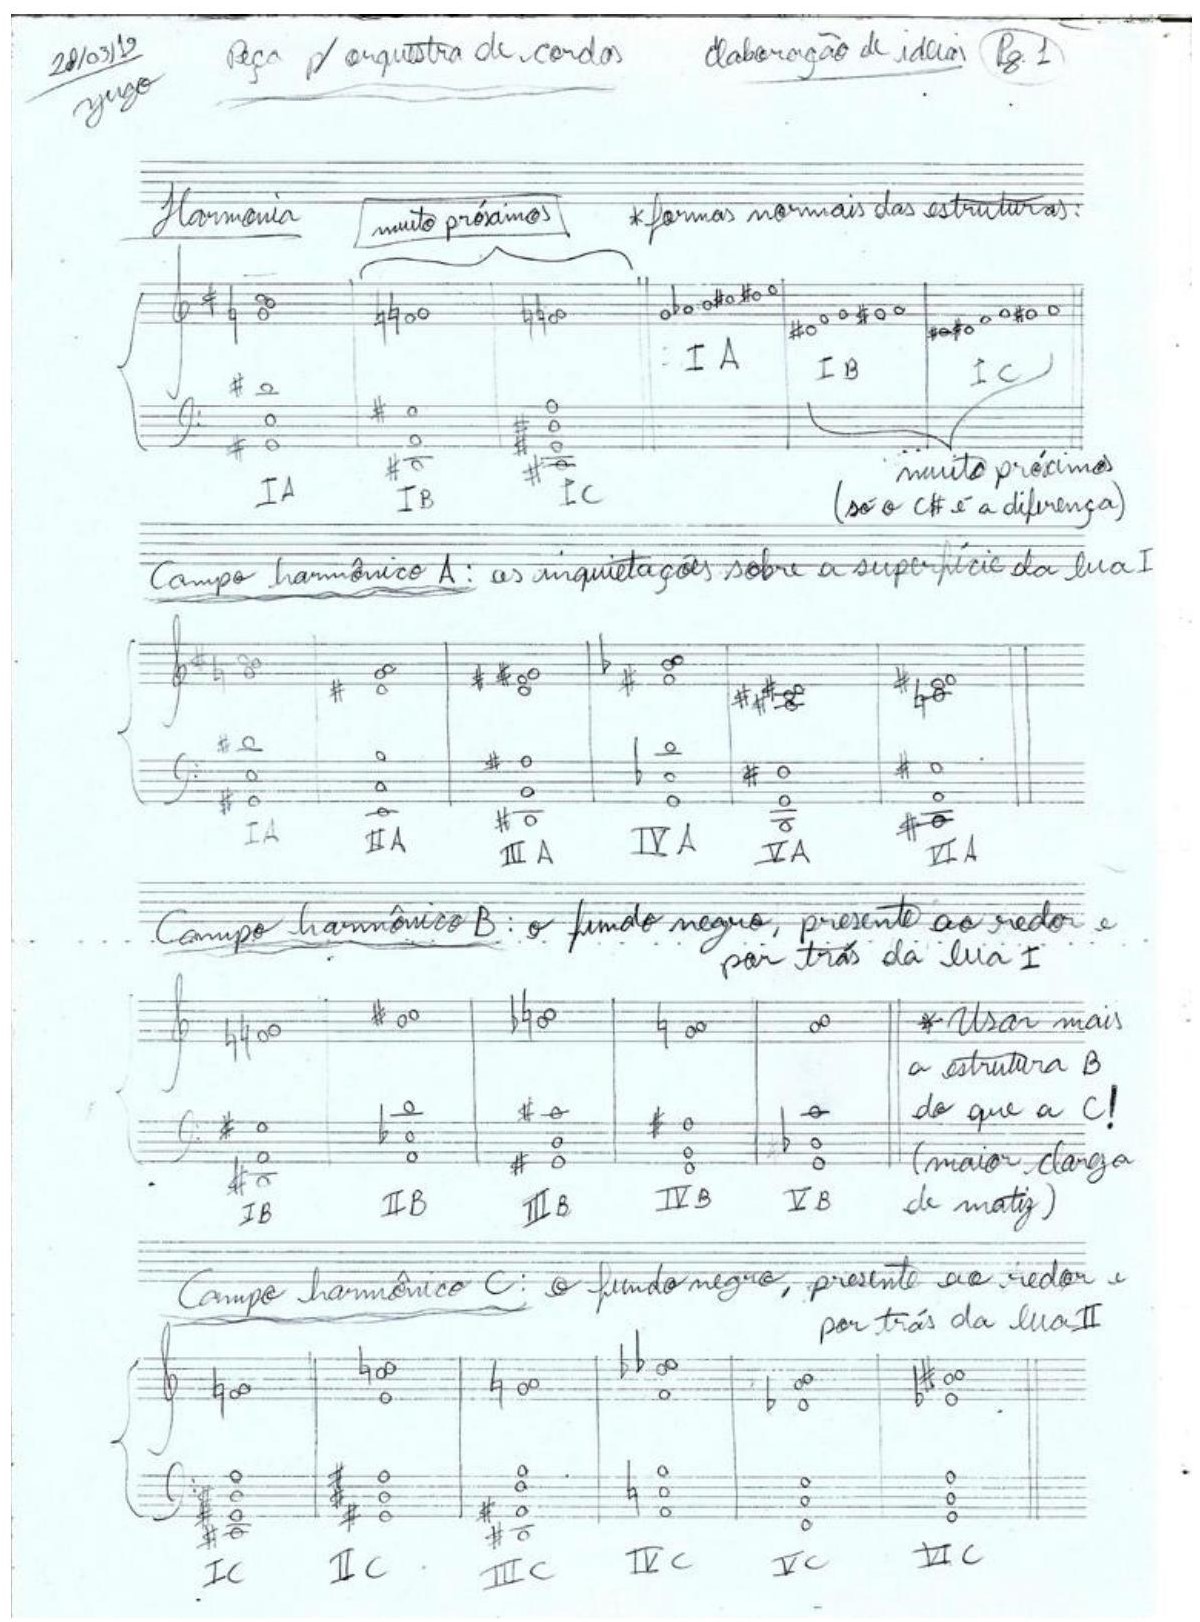 28/03/12 Peça p/ orquestra de cordas elaboração de ideias Pg. 1
Yugo
Harmonia muito próximos *formas normais das estruturas:
IA IB IC
IA IB IC
muito próximos
(só o C# é a diferença)
Campo harmônico A: as inquietações sobre a superfície da lua I
IA IIA IIIA IVA VA VIA
Campo harmônico B: o fundo negro, presente ao redor e
por trás da lua I
* Usar mais
a estrutura B
do que a C!
(maior clareza
de matiz)
IB IIB IIIB IVB VB
Campo harmônico C: o fundo negro, presente ao redor e
por trás da lua II
IC IIC IIIC IVC VC VIC